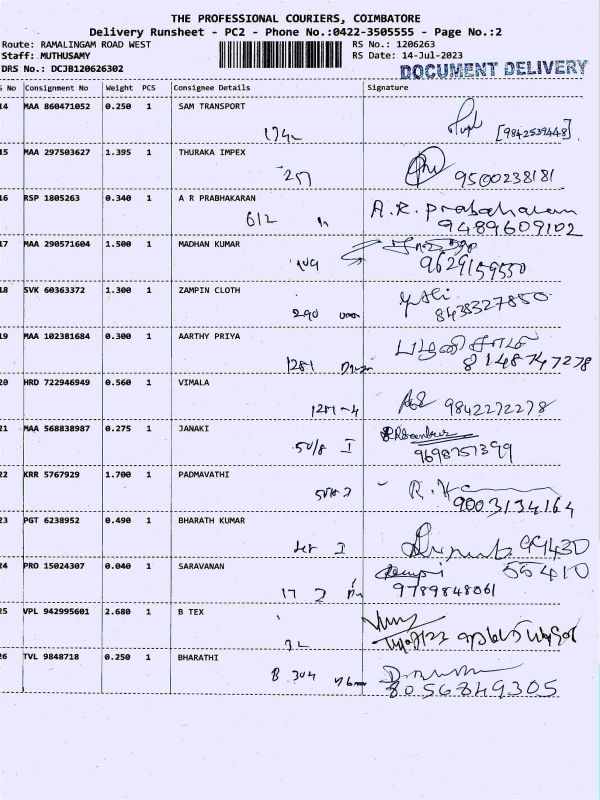 THE PROFESSIONAL COURIERS, COIMBATORE
Delivery Runsheet - PC2 - Phone No.:0422-3505555 - Page No.:2
Route: RAMALINGAM ROAD WEST RS No.: 1206263
Staff: MUTHUSAMY RS Date: 14-Jul-2023
DRS No.: DCJB120626302 DOCUMENT DELIVERY
S No Consignment No Weight PCS Consignee Details Signature
14 MAA 860471052 0.250 1 SAM TRANSPORT
[9842539448]
15 MAA 297503627 1.395 1 THURAKA IMPEX
9500238181
16 RSP 1805263 0.340 1 A R PRABHAKARAN A.R. Prabaharan
612 9489609102
17 MAA 290571604 1.500 1 MADHAN KUMAR
9629159550
18 SVK 60363372 1.300 1 ZAMPIN CLOTH
290 8438327850
19 MAA 102381684 0.300 1 AARTHY PRIYA
1281 8148747278
20 HRD 722946949 0.560 1 VIMALA
1281-4 9842272278
21 MAA 568838987 0.275 1 JANAKI
50/8 I 9698751399
22 KRR 5767929 1.700 1 PADMAVATHI
9003134164
23 PGT 6238952 0.490 1 BHARATH KUMAR
99430
24 PRO 15024307 0.040 1 SARAVANAN 55410
17 9789848061
25 VPL 942995601 2.680 1 B TEX
26 TVL 9848718 0.250 1 BHARATHI
B 304 8056849305